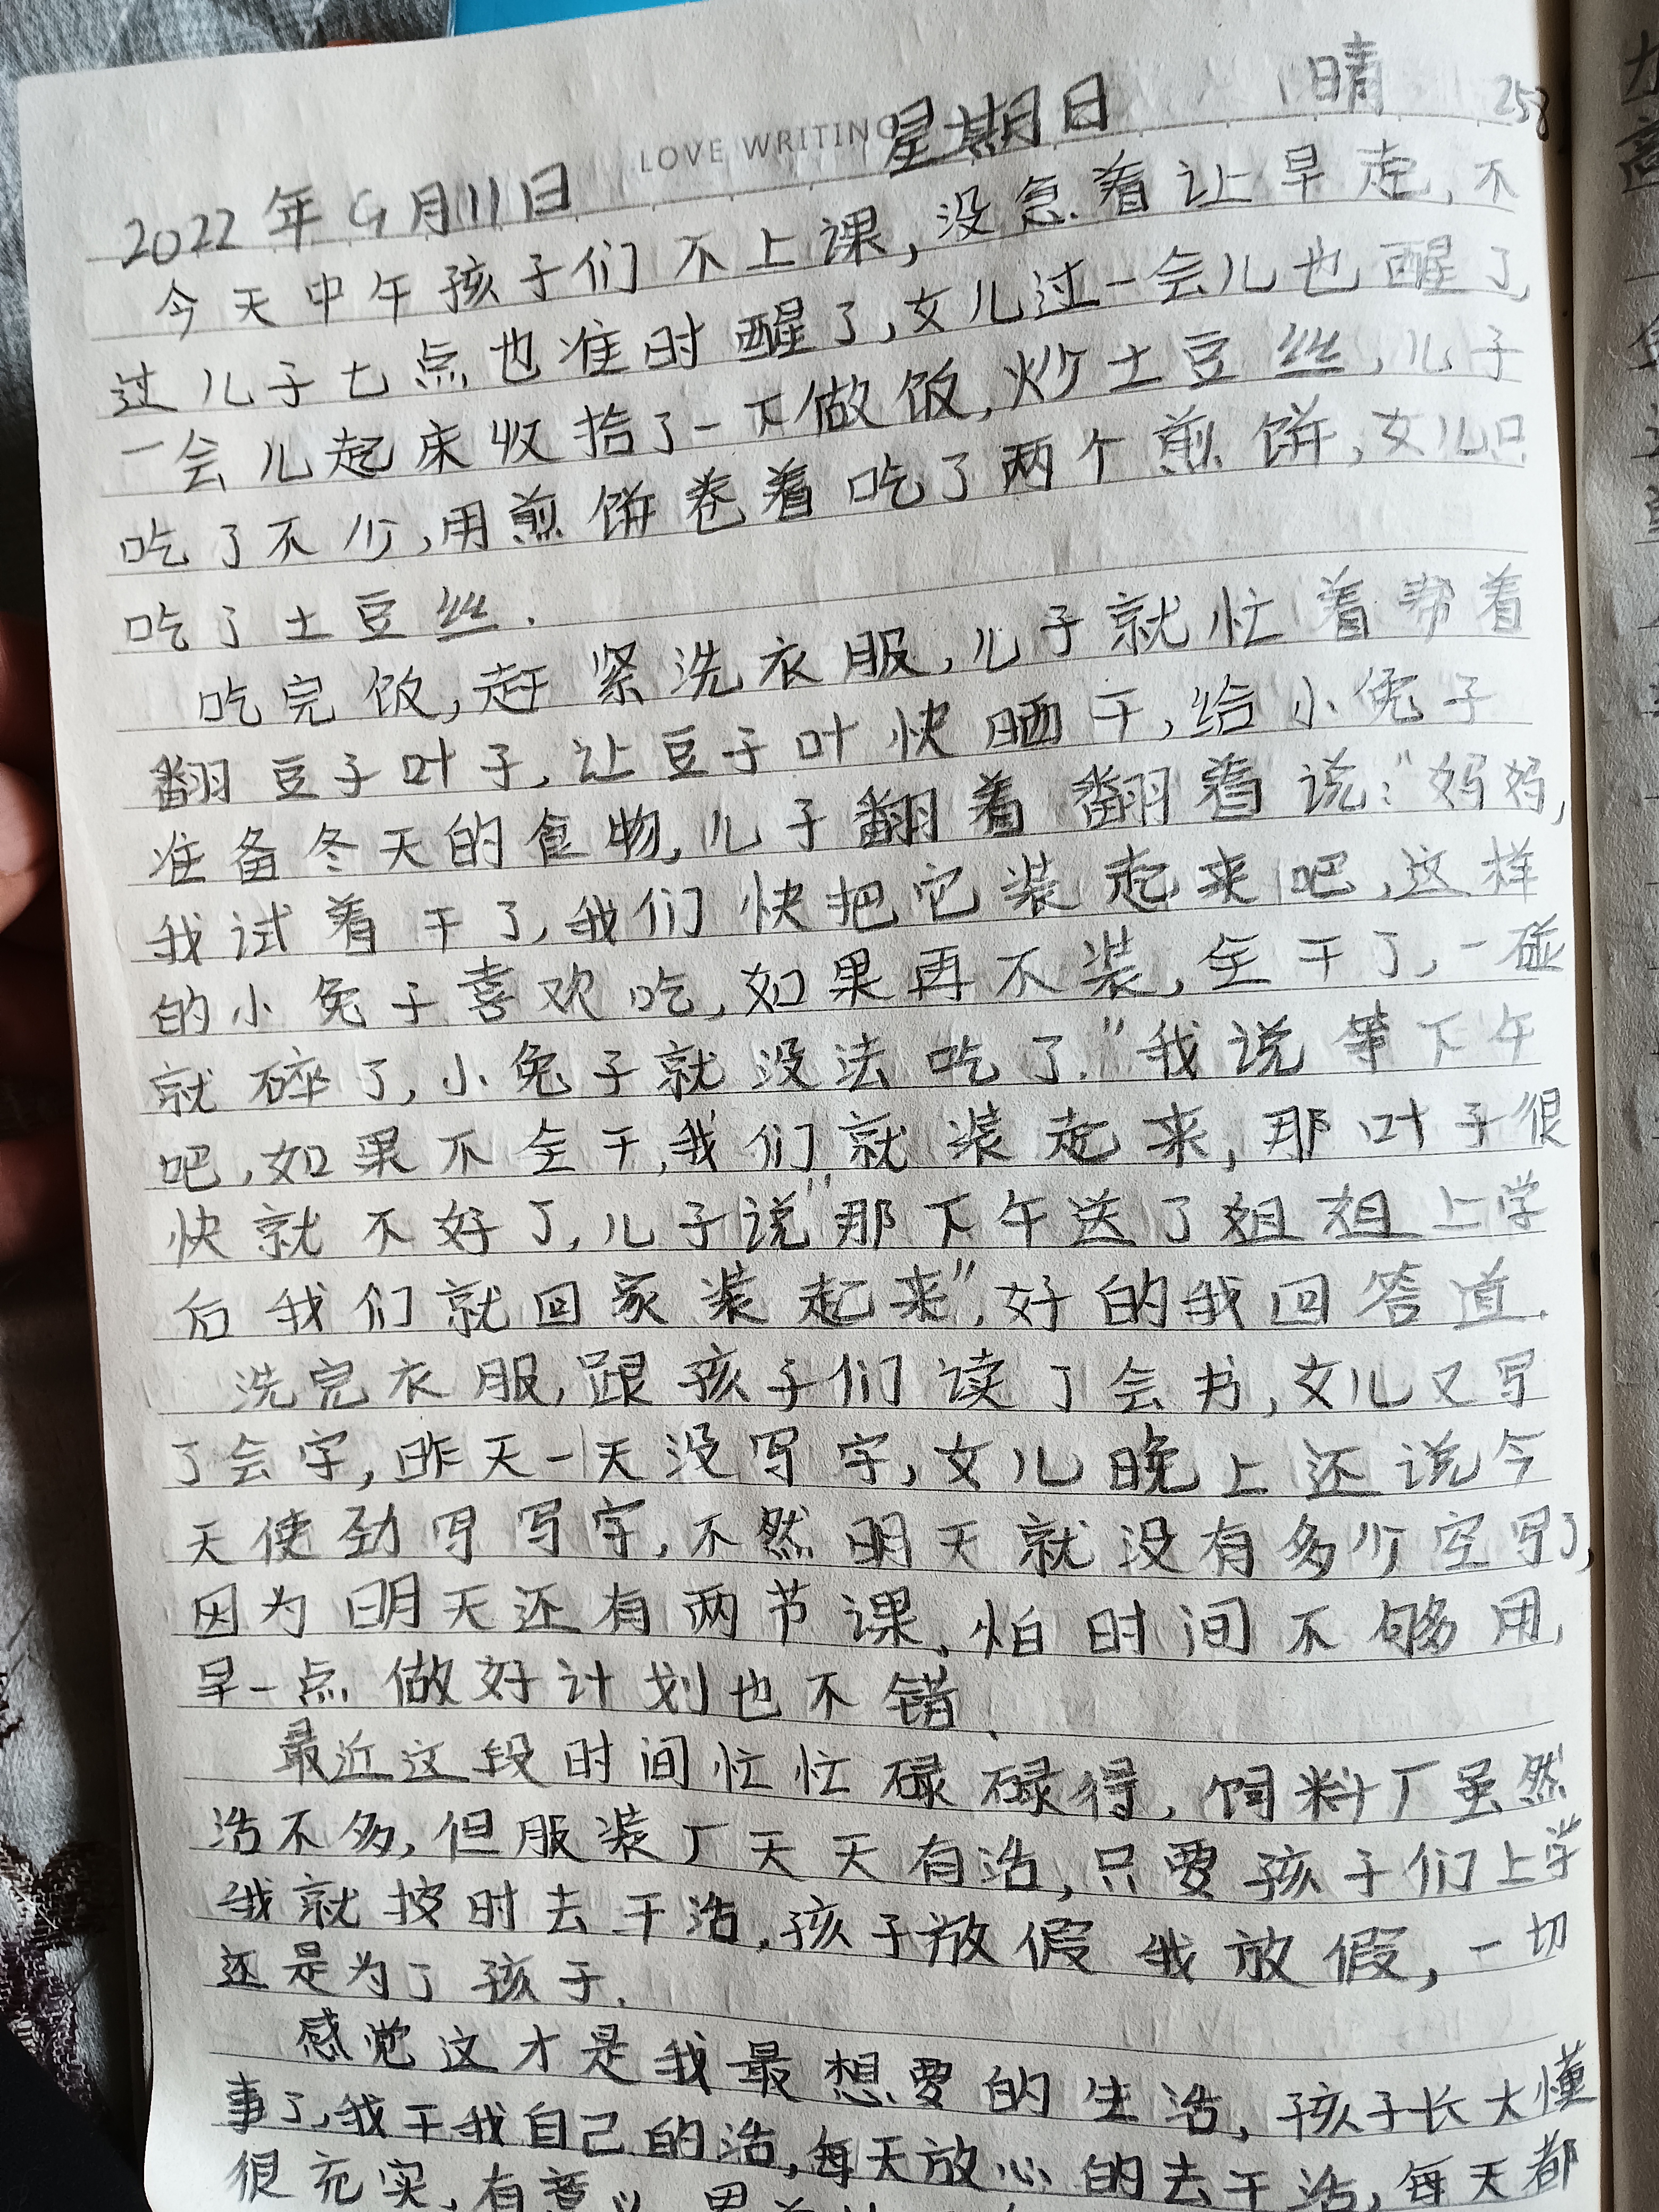 LOVE WRITING
2022年9月11日 星期日 晴 258
今天中午孩子们不上课,没急着让早走,不
过儿子七点也准时醒了,女儿过一会儿也醒了,
一会儿起床收拾了一下做饭,炒土豆丝,儿子
吃了不少,用煎饼卷着吃了两个煎饼,女儿只
吃了土豆丝.
吃完饭,赶紧洗衣服,儿子就忙着帮着
翻豆子叶子,让豆子叶快晒干,给小兔子
准备冬天的食物,儿子翻着翻着说:"妈妈,
我试着干了,我们快把它装起来吧,这样
的小兔子喜欢吃,如果再不装,全干了,一碰
就碎了,小兔子就没法吃了."我说等下午
吧,如果不全干,我们就装起来,那叶子很
快就不好了,儿子说"那下午送了姐姐上学
后我们就回家装起来",好的我回答道.
洗完衣服,跟孩子们读了会书,女儿又写
了会字,昨天一天没写字,女儿晚上还说今
天使劲写写字,不然明天就没有多少空写了,
因为明天还有两节课,怕时间不够用,
早一点做好计划也不错.
最近这段时间忙忙碌碌得,饲料厂虽然
活不多,但服装厂天天有活,只要孩子们上学
我就按时去干活,孩子放假我放假,一切
还是为了孩子.
感觉这才是我最想要的生活,孩子长大懂
事了,我干我自己的活,每天放心的去干活,每天都
很充实,有意义